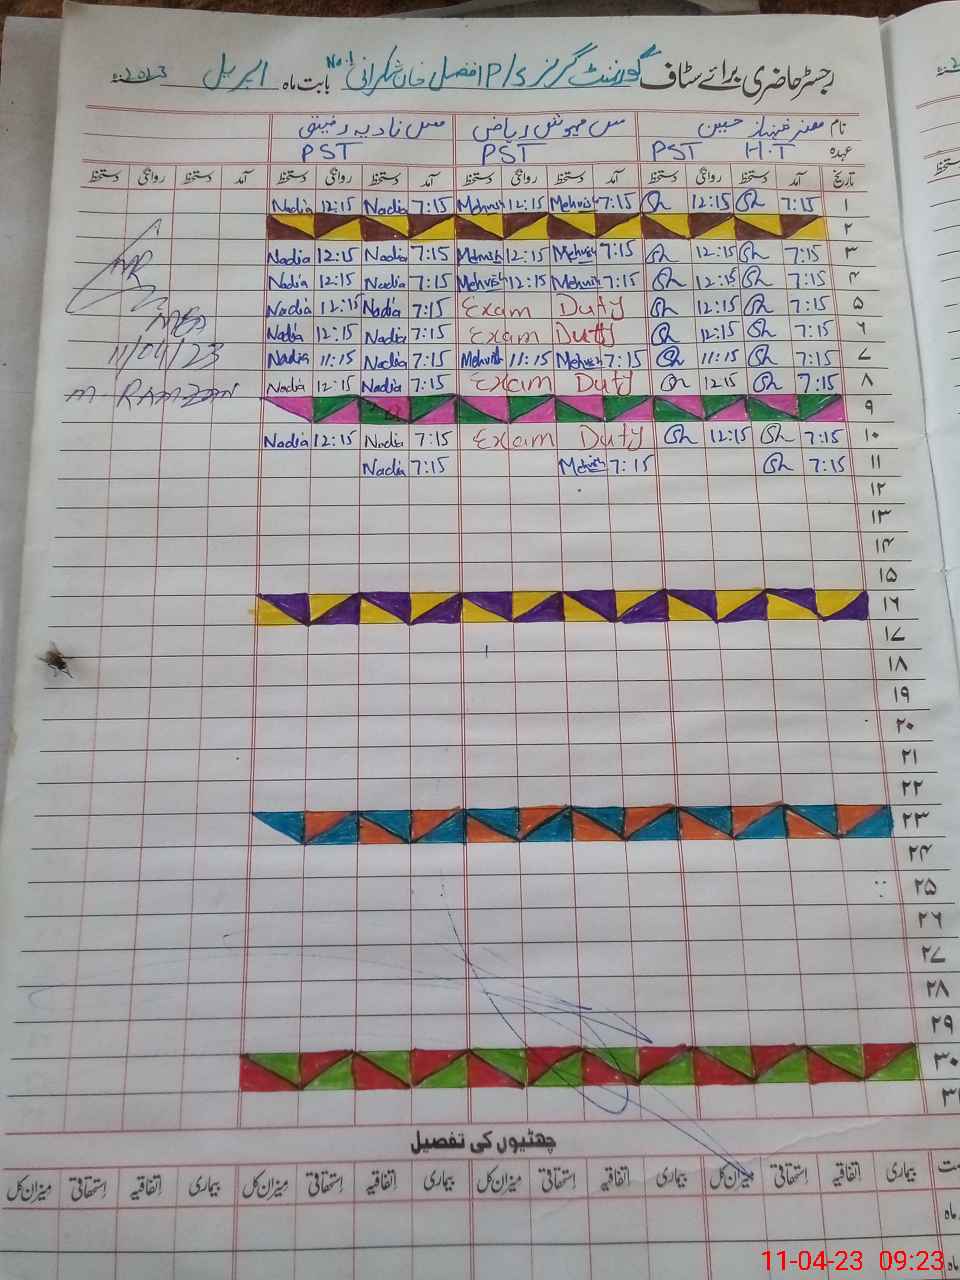 رجسٹر حاضری برائے سٹاف گورنمنٹ گرلز P/S افضل خان شکرانی No.1 بابت ماہ اپریل 2023ء
نام مسز شہناز حسین مس مہوش ریاض مس نادیہ رفیق
عہدہ PST H.T PST PST
تاریخ آمد دستخط روانگی دستخط آمد دستخط روانگی دستخط آمد دستخط روانگی دستخط آمد دستخط روانگی دستخط
۱ 7:15 Sh 12:15 Sh 7:15 Mehvish 12:15 Mehvish 7:15 Nadia 12:15 Nadia
۲
۳ 7:15 Sh 12:15 Sh 7:15 Mehvish 12:15 Mehvish 7:15 Nadia 12:15 Nadia
۴ 7:15 Sh 12:15 Sh 7:15 Mehvish 12:15 Mehvish 7:15 Nadia 12:15 Nadia
۵ 7:15 Sh 12:15 Sh Exam Duty 7:15 Nadia 12:15 Nadia
۶ 7:15 Sh 12:15 Sh Exam Duty 7:15 Nadia 12:15 Nadia
۷ 7:15 Sh 11:15 Sh 7:15 Mehvish 11:15 Mehvish 7:15 Nadia 11:15 Nadia
11/04/23
۸ 7:15 Sh 12:15 Sh Exam Duty 7:15 Nadia 12:15 Nadia
M. RAMZAN
۹
۱۰ 7:15 Sh 12:15 Sh Exam Duty 7:15 Nadia 12:15 Nadia
۱۱ 7:15 Sh 7:15 Mehvish 7:15 Nadia
۱۲
۱۳
۱۴
۱۵
۱۶
۱۷
۱۸
۱۹
۲۰
۲۱
۲۲
۲۳
۲۴
۲۵
۲۶
۲۷
۲۸
۲۹
۳۰
۳۱
چھٹیوں کی تفصیل
بیماری اتفاقیہ استحقاقی میزان کل بیماری اتفاقیہ استحقاقی میزان کل بیماری اتفاقیہ استحقاقی میزان کل
11-04-23 09:23